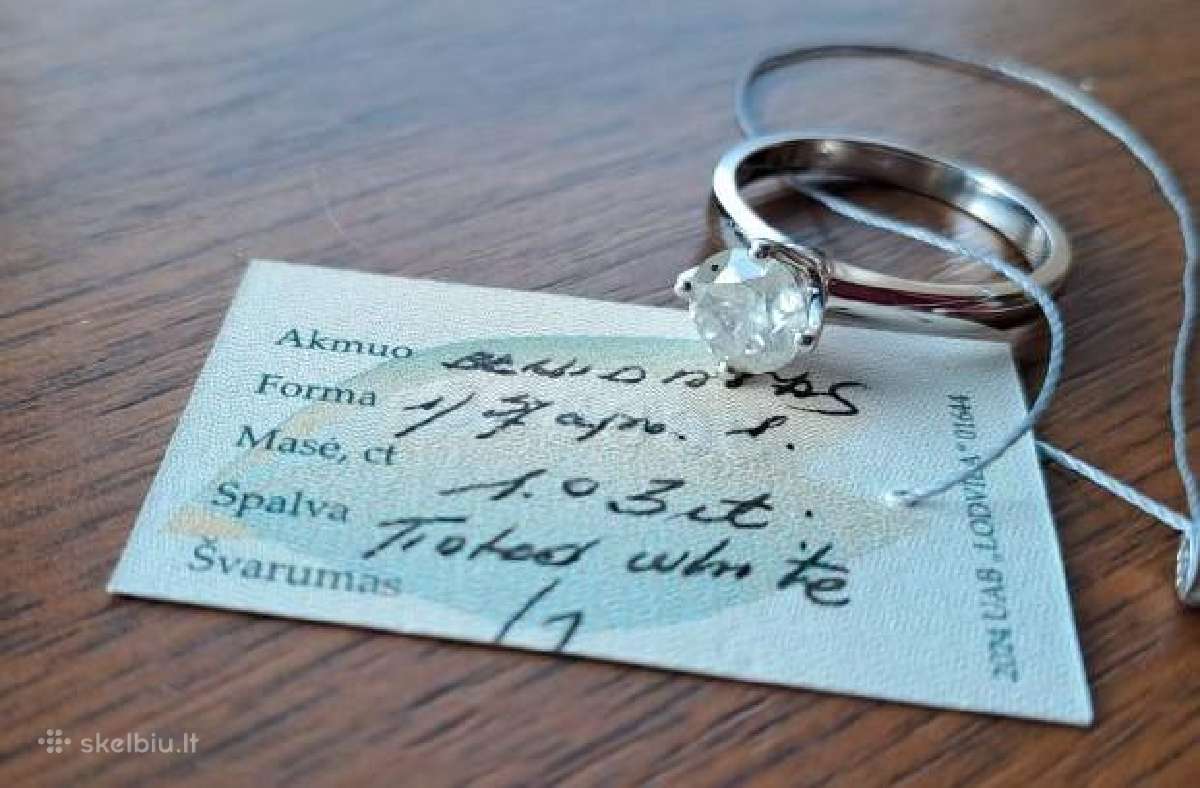 Akmuo
Forma
Masė, ct 1.03 ct.
Spalva Tinted white
Švarumas I1
2024 UAB „LODVILA“ 01644
skelbiu.lt